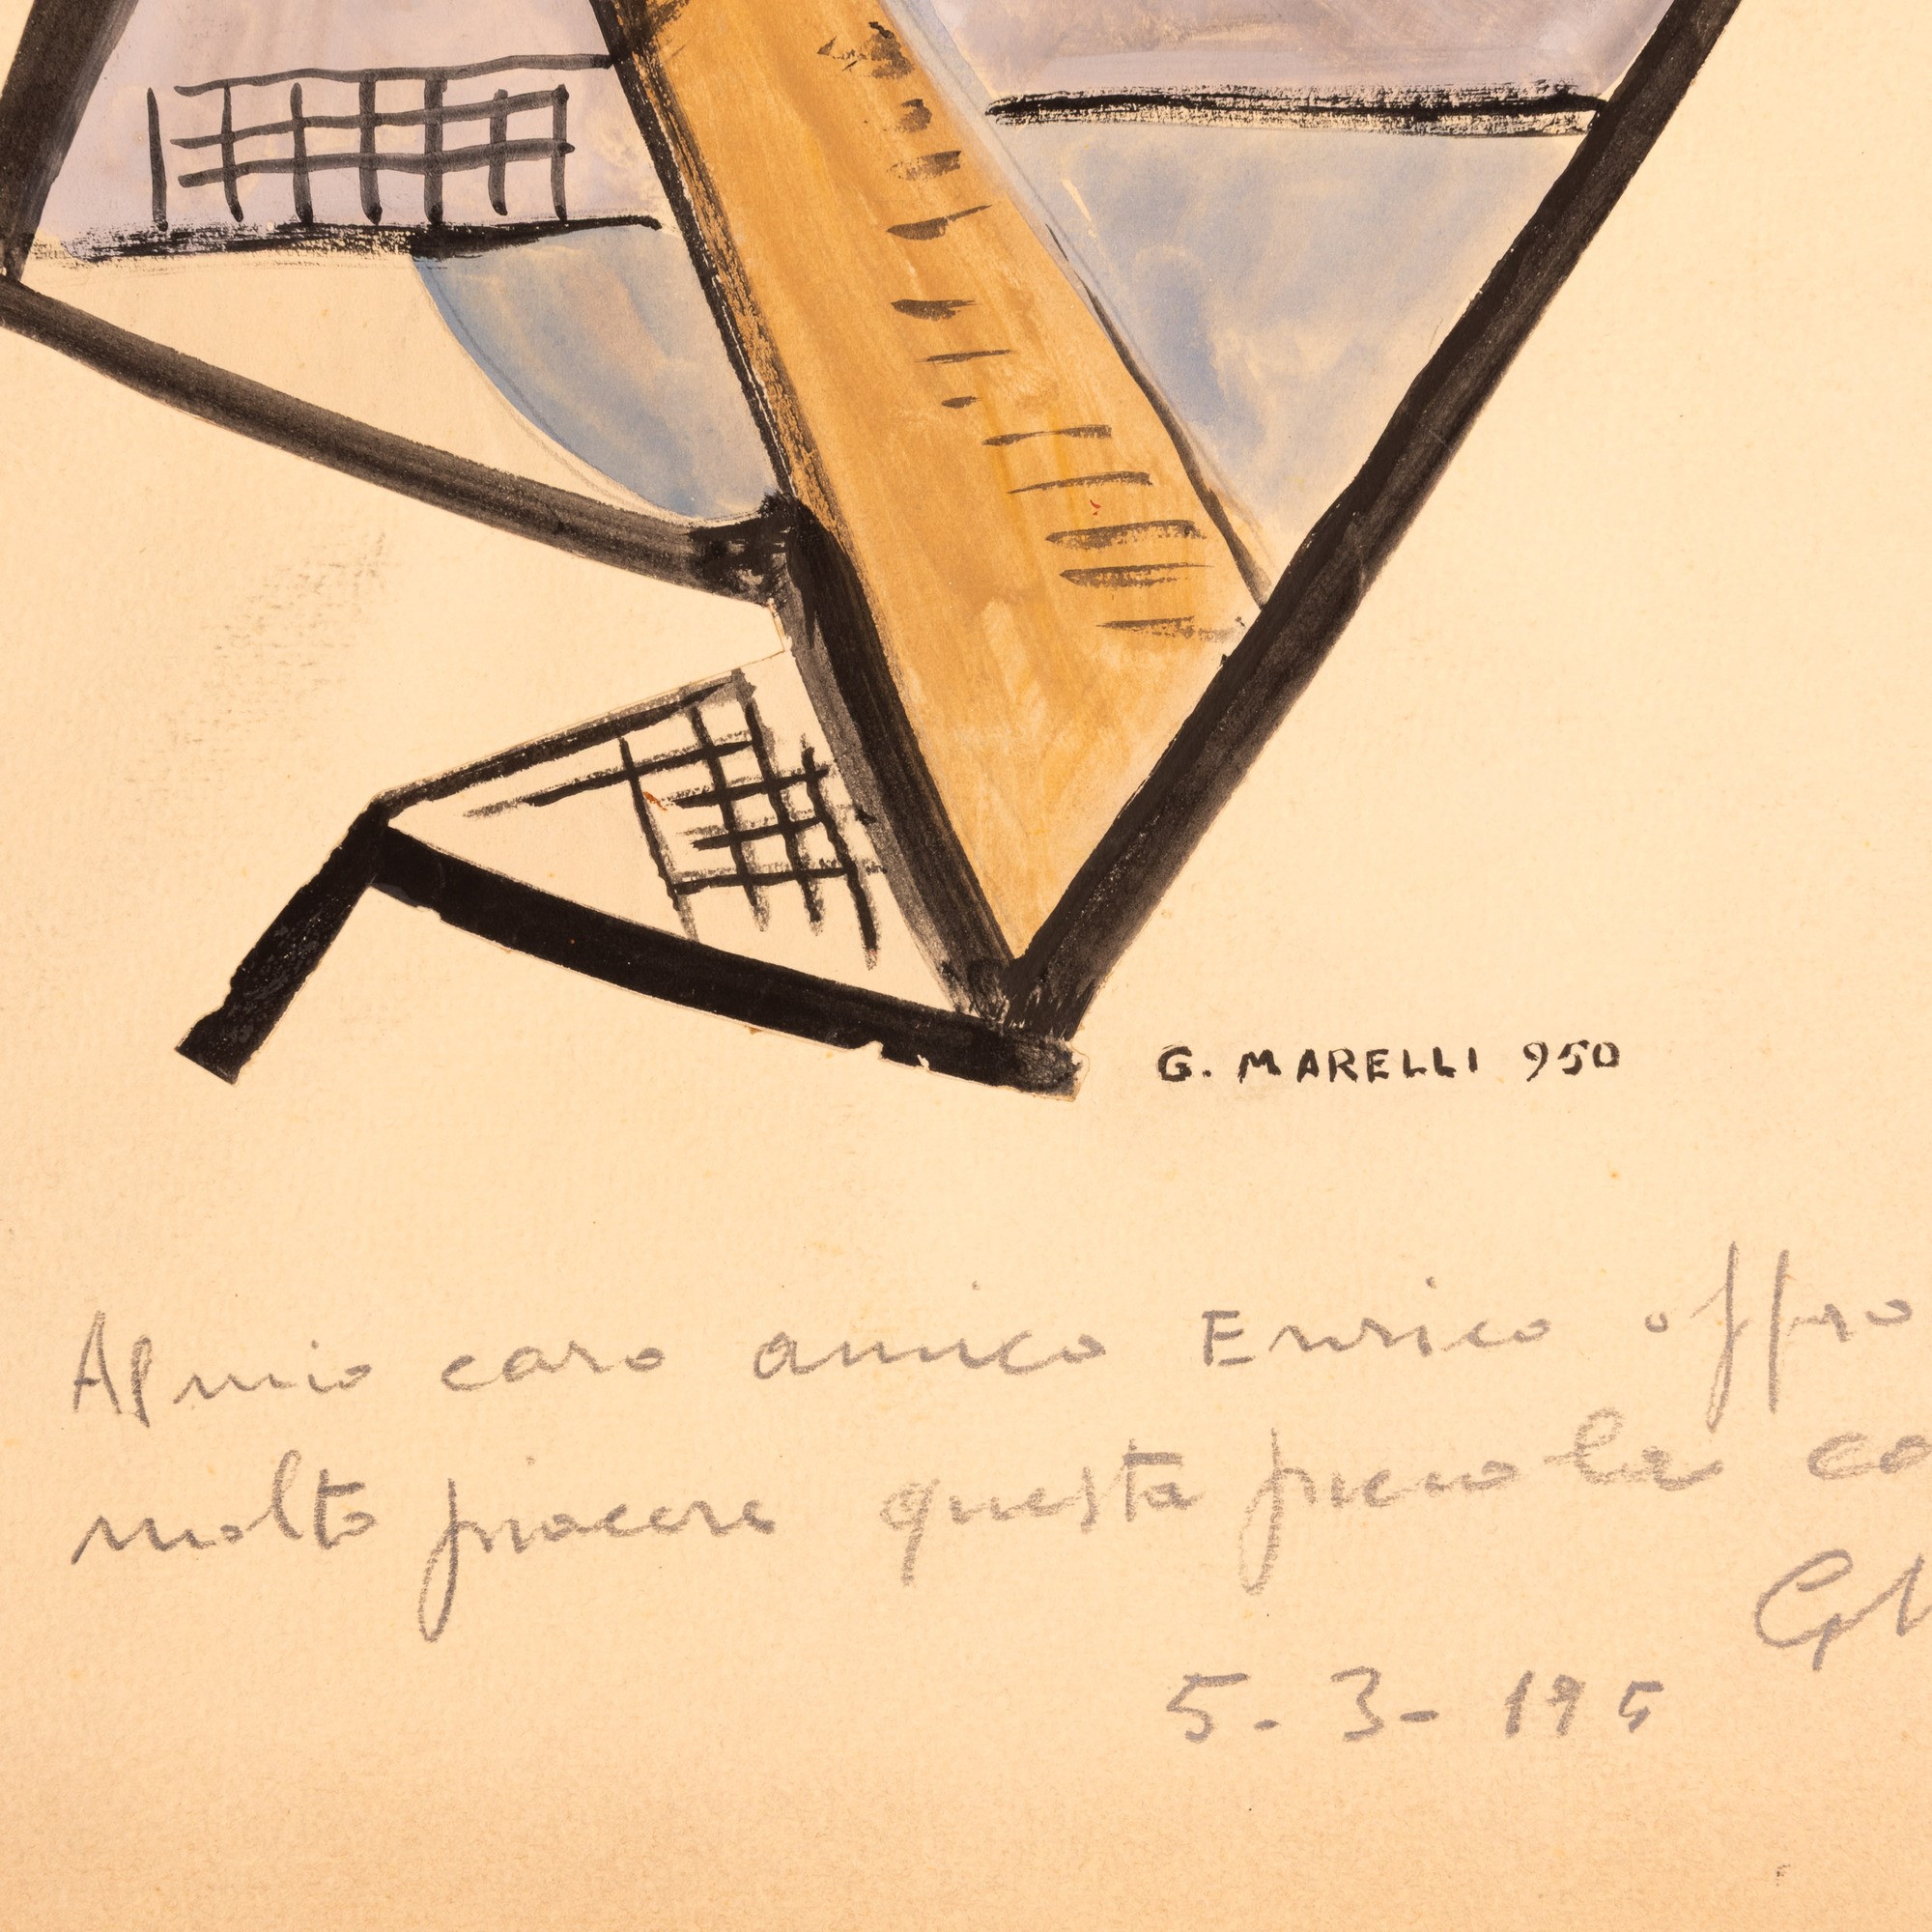 G. MARELLI 950
Al mio caro amico Enrico offro
molto piacere questa piccola co
GM
5-3-195